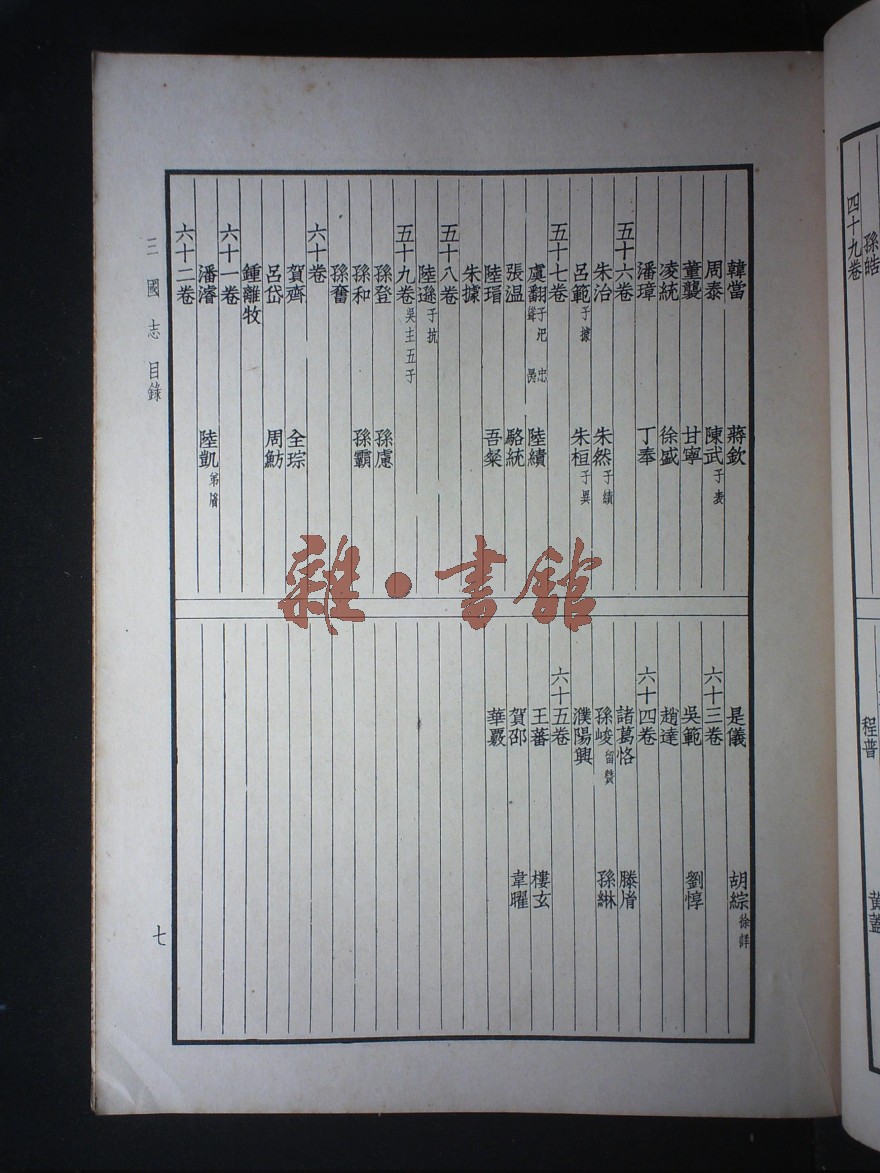 韓當 蔣欽
周泰 陳武子表
董襲 甘寧
凌統 徐盛
潘璋 丁奉
五十六卷
朱治 朱然子績
呂範子據 朱桓子異
五十七卷
虞翻子汜 忠 聳 昺 陸績
張温 駱統
陸瑁 吾粲
朱據
五十八卷
陸遜子抗
五十九卷吳主五子
孫登 孫慮
孫和 孫霸
孫奮
六十卷
賀齊 全琮
呂岱 周魴
鍾離牧
六十一卷
潘濬 陸凱弟胤
六十二卷
是儀 胡綜徐詳
六十三卷
吳範 劉惇
趙達
六十四卷
諸葛恪 滕胤
孫峻留贊 孫綝
濮陽興
六十五卷
王蕃 樓玄
賀邵 韋曜
華覈
三國志 目錄
七
孫皓
四十九卷
程普
黃蓋
雜·書館